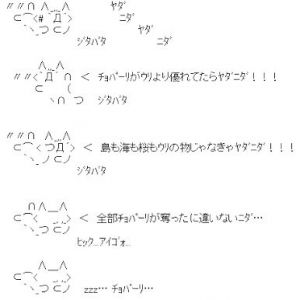 ヤダ
ニダ
ヤダ
ジタバタ ニダ
< チョパーリがウリより優れてたらヤダニダ！！！
ジタバタ
< 島も海も桜もウリの物じゃなきゃヤダニダ！！！
ジタバタ
< 全部チョパーリが奪ったに違いないニダ…
ヒック...アイゴォ..
zzz… チョパーリ…